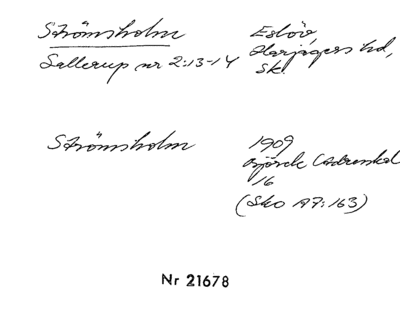 Strömsholm
Eslöv,
Harjagers hd,
Sallerup nr 2:13-14
Sk.
Strömsholm
1909
Björck
16
(Sko A7:163)
Nr 21678